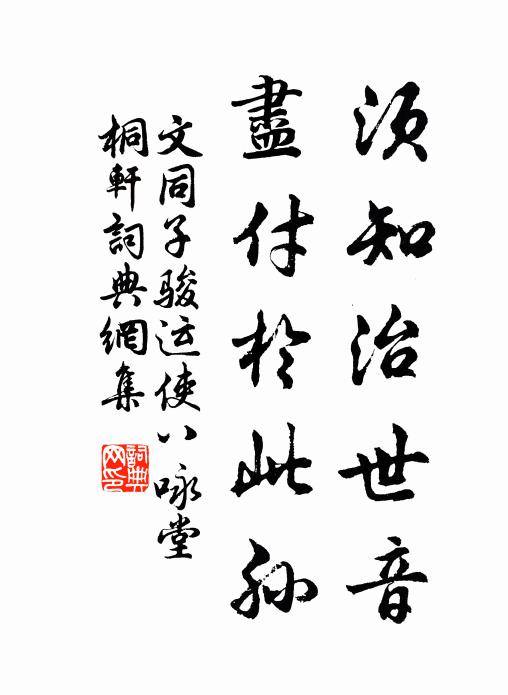 須知治世音
盡付於此孫
文同子駿运使八咏堂
桐軒詞典網集
詞典网印